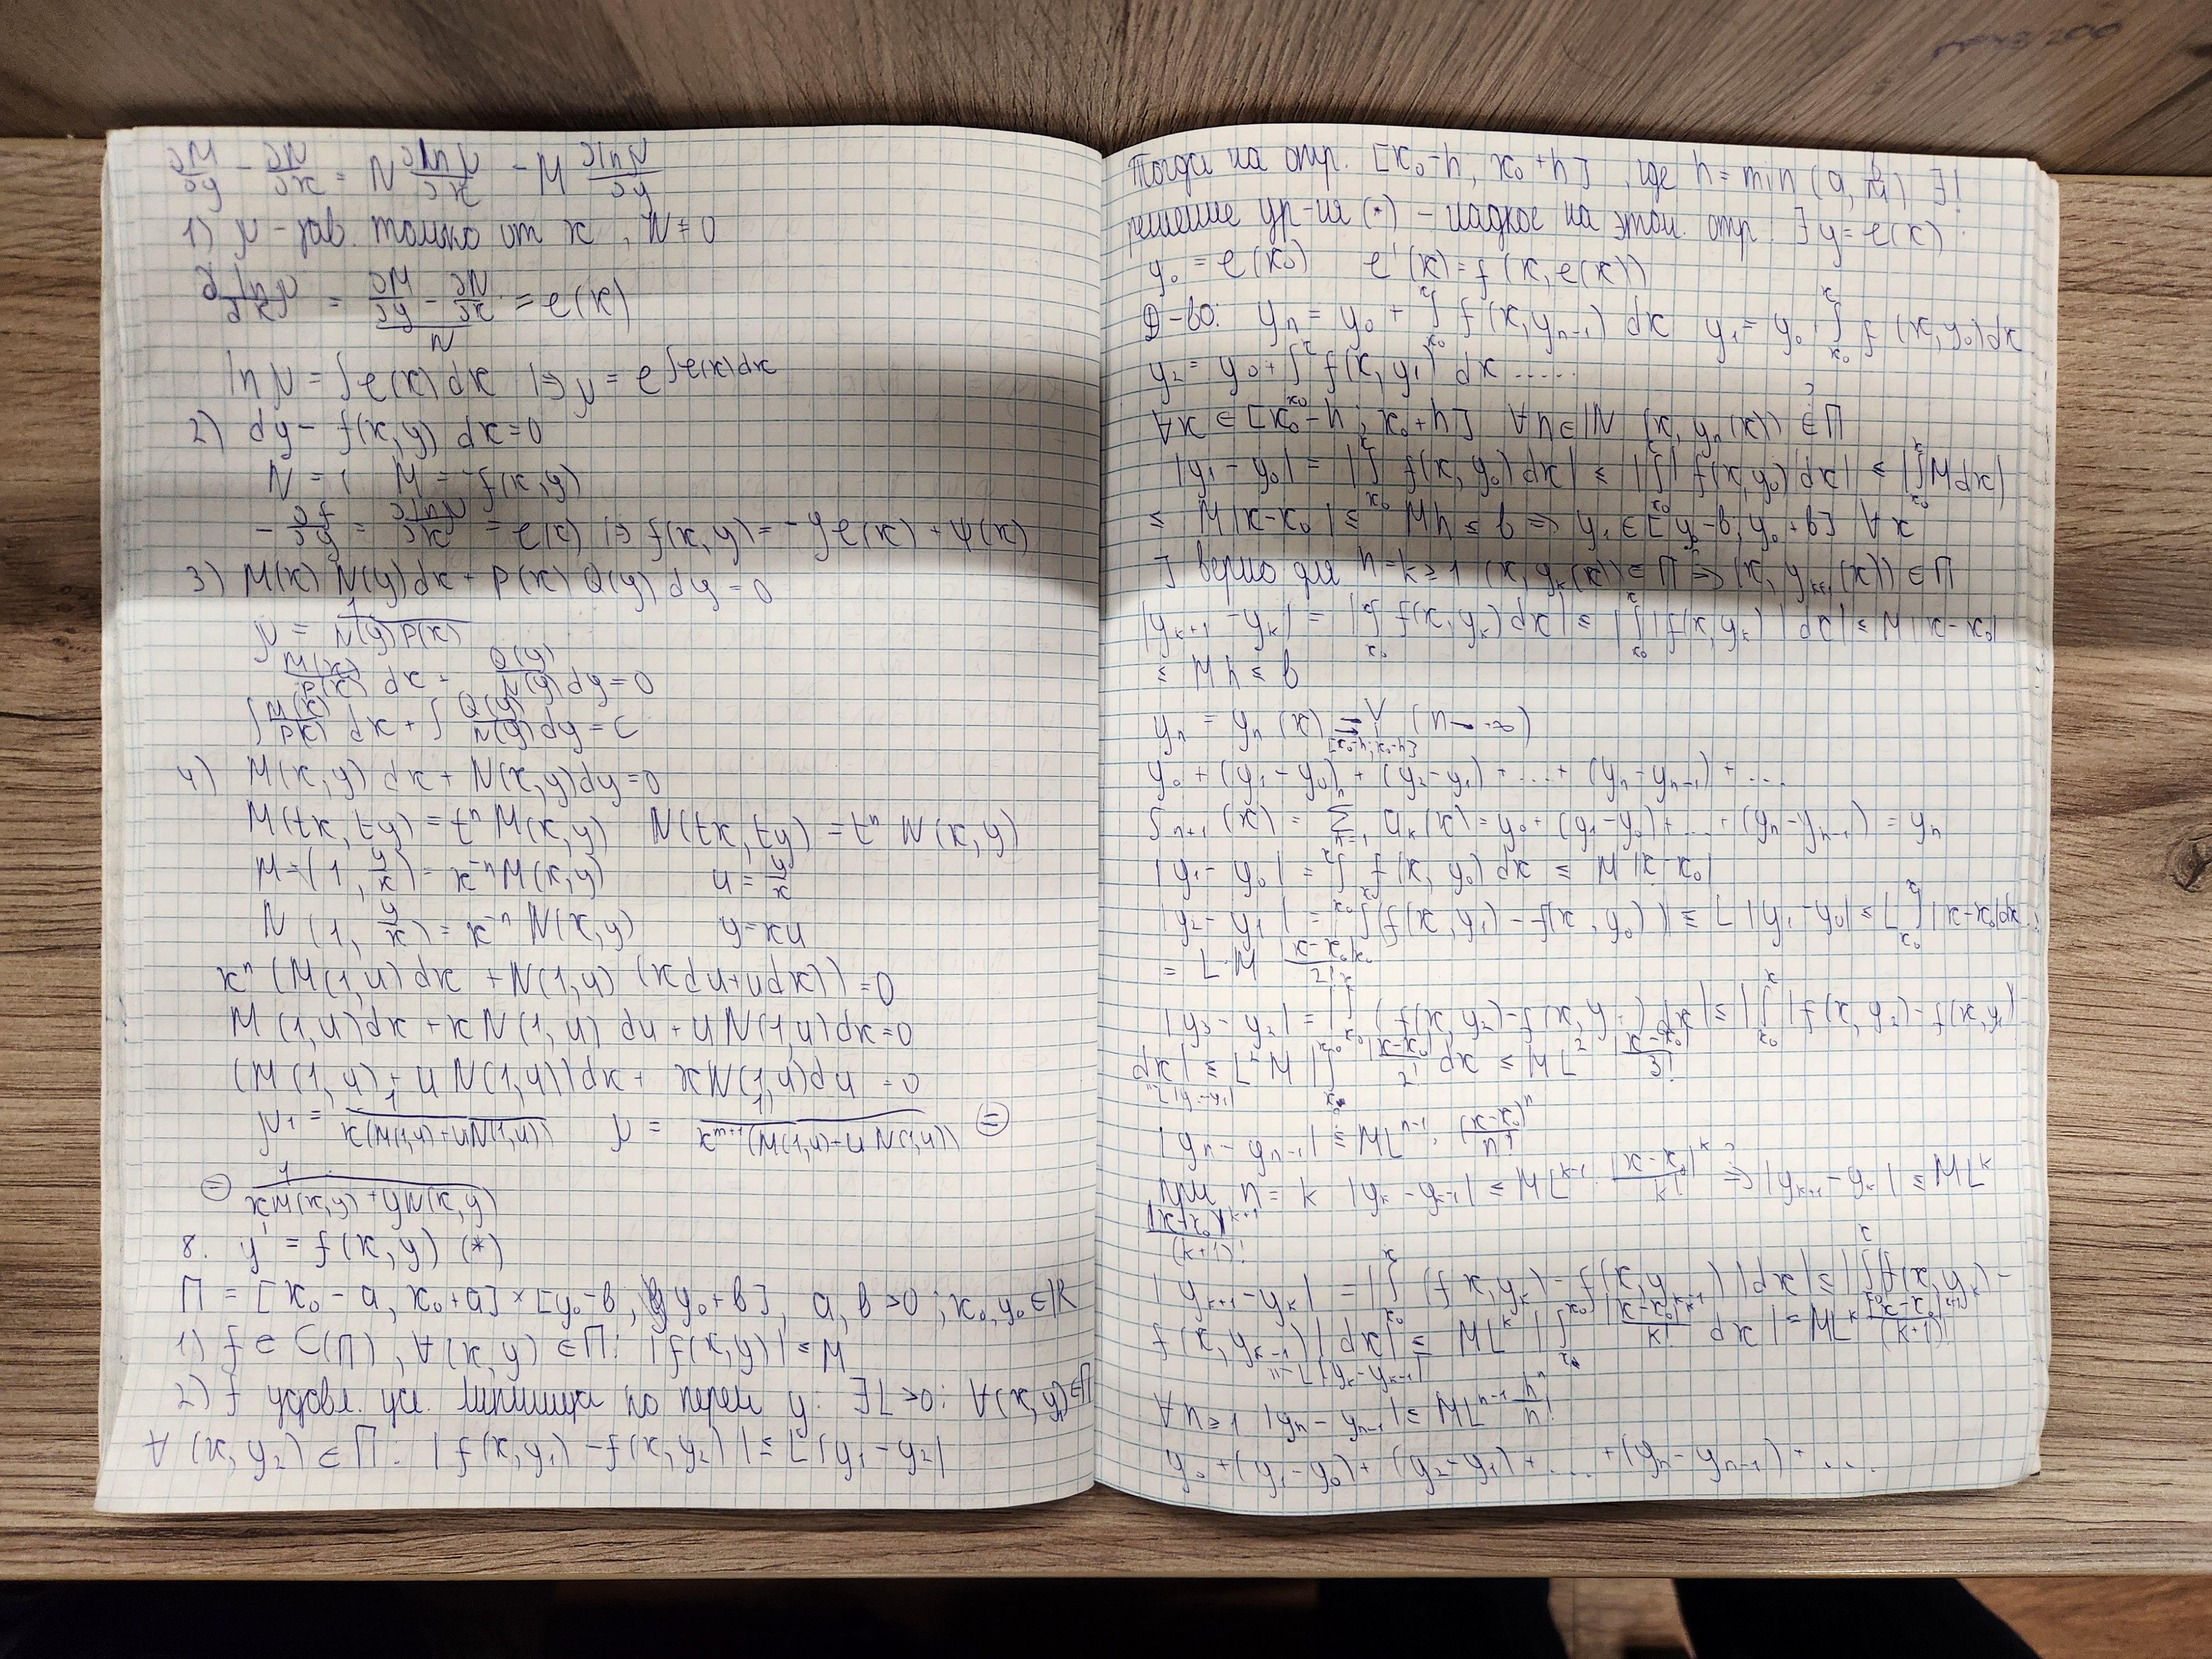 ∂M/∂y − ∂N/∂x = N ∂lnμ/∂x − M ∂lnμ/∂y
1) μ – зав. только от x, N ≠ 0
d lnμ/dx = (∂M/∂y − ∂N/∂x)/N = φ(x)
lnμ = ∫φ(x)dx |⇒ μ = e^{∫φ(x)dx}
2) dy − f(x,y) dx = 0
N = 1 M = −f(x,y)
−∂f/∂y = ∂lnμ/∂x = φ(x) |⇒ f(x,y) = −yφ(x) + ψ(x)
3) M(x) N(y)dx + P(x) Q(y)dy = 0
μ = 1/(N(y)P(x))
M(x)/P(x) dx + Q(y)/N(y) dy = 0
∫ M(x)/P(x) dx + ∫ Q(y)/N(y) dy = C
4) M(x,y) dx + N(x,y)dy = 0
M(tx,ty) = tⁿ M(x,y) N(tx,ty) = tⁿ N(x,y)
M = (1, y/x) = x⁻ⁿ M(x,y) u = y/x
N (1, y/x) = x⁻ⁿ N(x,y) y = xu
xⁿ (M(1,u)dx + N(1,u) (xdu+udx)) = 0
M(1,u)dx + xN(1,u) du + uN(1,u)dx = 0
(M(1,u) + uN(1,u))dx + xN(1,u)du = 0
μ₁ = 1/(x(M(1,u)+uN(1,u))) μ = 1/(x^{m+1}(M(1,u)+uN(1,u))) ⊜
⊜ 1/(xM(x,y) + yN(x,y))
8. y' = f(x,y) (*)
Π = [x₀ − a, x₀+a] × [y₀−b, y₀+b], a,b >0; x₀,y₀ ∈ ℝ
1) f ∈ C(Π), ∀(x,y) ∈ Π: |f(x,y)| ≤ M
2) f удовл. усл. Липшица по перем y: ∃L>0: ∀(x,y₁)∈Π
∀ (x,y₂) ∈ Π: |f(x,y₁) − f(x,y₂)| ≤ L|y₁ − y₂|
Тогда на отр. [x₀−h, x₀+h], где h = min (a, b/M) ∃!
решение ур-ия (*) – гладкое на этом. отр. ] y = φ(x)
y₀ = φ(x₀) φ'(x) = f(x,φ(x))
Д-во: yₙ = y₀ + ∫_{x₀}^{x} f(x,yₙ₋₁) dx y₁ = y₀ + ∫_{x₀}^{x} f(x,y₀)dx
y₂ = y₀ + ∫_{x₀}^{x} f(x,y₁) dx .....
∀x ∈ [x₀−h, x₀+h] ∀n∈ℕ (x, yₙ(x)) ∈ Π
|y₁ − y₀| = |∫_{x₀}^{x} f(x,y₀)dx| ≤ |∫_{x₀}^{x} |f(x,y₀)|dx| ≤ |∫_{x₀}^{x} Mdx|
≤ M|x−x₀| ≤ hM ≤ b ⇒ y₁∈[y₀−b, y₀+b] ∀x
] верно для n=k≥1 (x,y_k(x))∈Π ⇒ (x, y_{k+1}(x)) ∈ Π
|y_{k+1} − y_k| = |∫_{x₀}^{x} f(x,y_k)dx| ≤ |∫_{x₀}^{x} |f(x,y_k)|dx| ≤ M|x−x₀|
≤ Mh ≤ b
yₙ = yₙ(x) ⇉ y (n→∞) [x₀−h; x₀+h]
y₀ + (y₁−y₀) + (y₂−y₁) + ... + (yₙ−yₙ₋₁) + ...
Sₙ₊₁(x) = Σ u_k(x) = y₀ + (y₁−y₀) + ... + (yₙ−yₙ₋₁) = yₙ
|y₁ − y₀| = ∫_{x₀}^{x} f(x,y₀)dx ≤ M|x−x₀|
|y₂ − y₁| = ∫_{x₀}^{x} (f(x,y₁) − f(x,y₀)) ≤ L|y₁−y₀| ≤ L ∫_{x₀}^{x} |x−x₀|dx
= L·M |x−x₀|²/2!
|y₃ − y₂| = |∫_{x₀}^{x} (f(x,y₂) − f(x,y₁))dx| ≤ |∫_{x₀}^{x} |f(x,y₂) − f(x,y₁)|
dx| ≤ L²M |∫_{x₀}^{x} |x−x₀|²/2! dx ≤ ML² |x−x₀|³/3!
|yₙ − yₙ₋₁| ≤ MLⁿ⁻¹ · (x−x₀)ⁿ/n!
при n = k |y_k − y_{k−1}| ≤ ML^{k−1} · |x−x₀|^k/k! ⇒ |y_{k+1} − y_k| ≤ ML^k
|x−x₀|^{k+1}/(k+1)!
|y_{k+1} − y_k| = |∫_{x₀}^{x} (f(x,y_k) − f(x,y_{k−1}))dx| ≤ |∫_{x₀}^{x} |f(x,y_k) −
f(x,y_{k−1})|dx| ≤ ML^k |∫_{x₀}^{x} |x−x₀|^k/k! dx| = ML^k |x−x₀|^{k+1}/(k+1)!
∀n≥1 |yₙ − yₙ₋₁| ≤ MLⁿ⁻¹ hⁿ/n!
y₀ + (y₁−y₀) + (y₂−y₁) + ... + (yₙ−yₙ₋₁) + ...